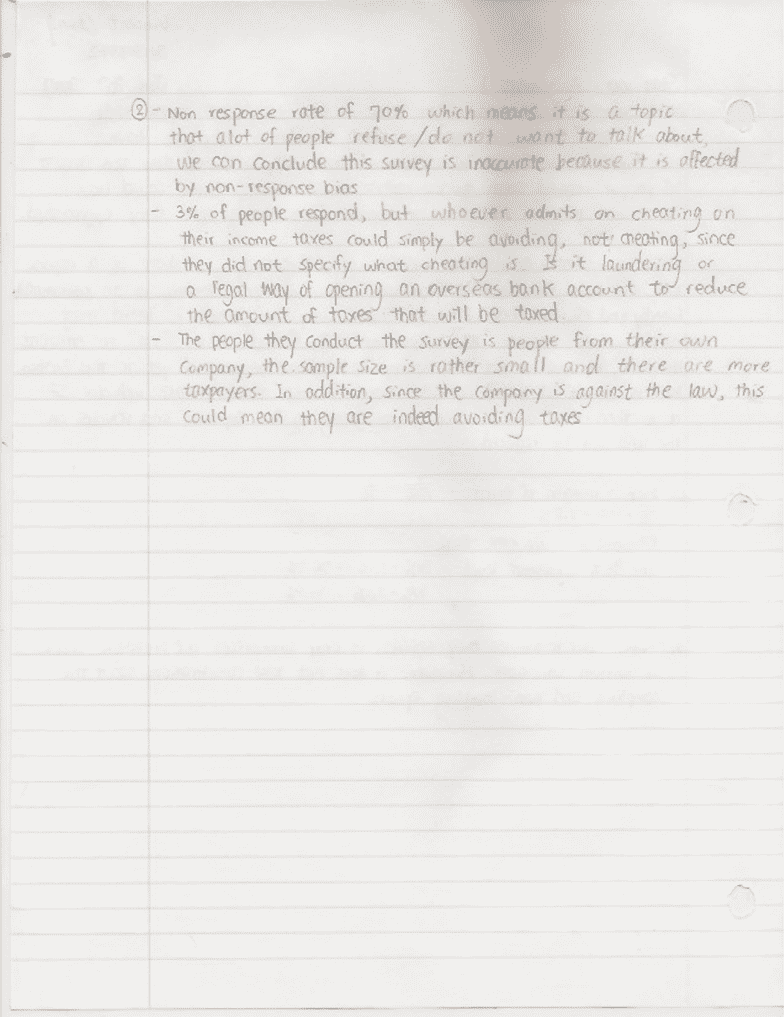 ② - Non response rate of 70% which means it is a topic
that alot of people refuse / do not want to talk about,
we can conclude this survey is inaccurate because it is affected
by non-response bias
- 3% of people respond, but whoever admits on cheating on
their income taxes could simply be avoiding, not cheating, since
they did not specify what cheating is. Is it laundering or
a legal way of opening an overseas bank account to reduce
the amount of taxes that will be taxed.
- The people they conduct the survey is people from their own
company, the sample size is rather small and there are more
taxpayers. In addition, since the company is against the law, this
could mean they are indeed avoiding taxes